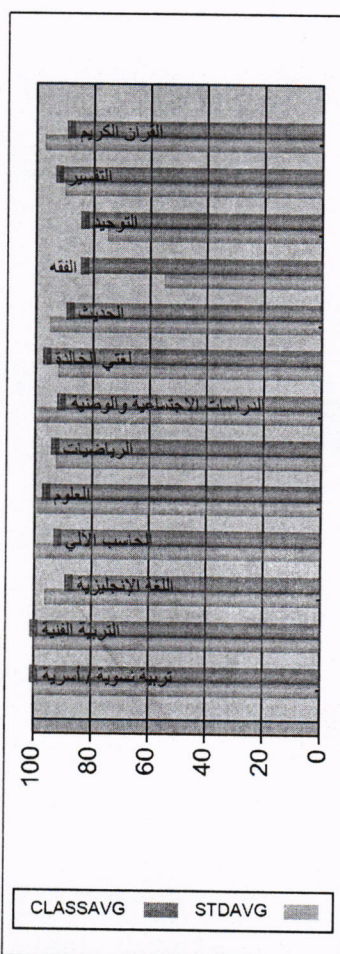 القرآن الكريم
التفسير
التوحيد
الفقه
الحديث
لغتي الخالدة
الدراسات الاجتماعية والوطنية
الرياضيات
العلوم
الحاسب الآلي
اللغة الإنجليزية
التربية الفنية
تربية نسوية / أسرية
100
80
60
40
20
0
CLASSAVG
STDAVG